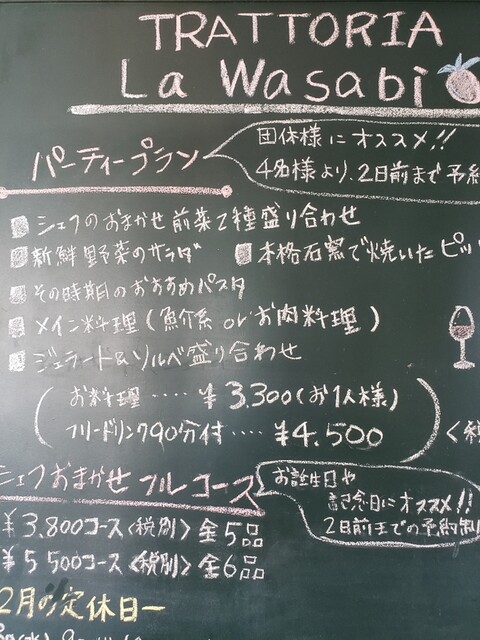 TRATTORIA
La Wasabi
パーティープラン
団体様にオススメ!!
4名様より、2日前まで予約
シェフのおまかせ前菜2種盛り合わせ
新鮮野菜のサラダ
本格石窯で焼いたピッ
その時期のおすすめパスタ
メイン料理(魚介系orお肉料理)
ジェラート&ソルベ盛り合わせ
お料理・・・・・¥3,300(お1人様)
フリードリンク90分付・・・・¥4,500
シェフおまかせフルコース
お誕生日や
記念日にオススメ!!
2日前までの予約制
¥3,800コース<税別>全5品
¥5500コース<税別>全6品
2月の定休日ー